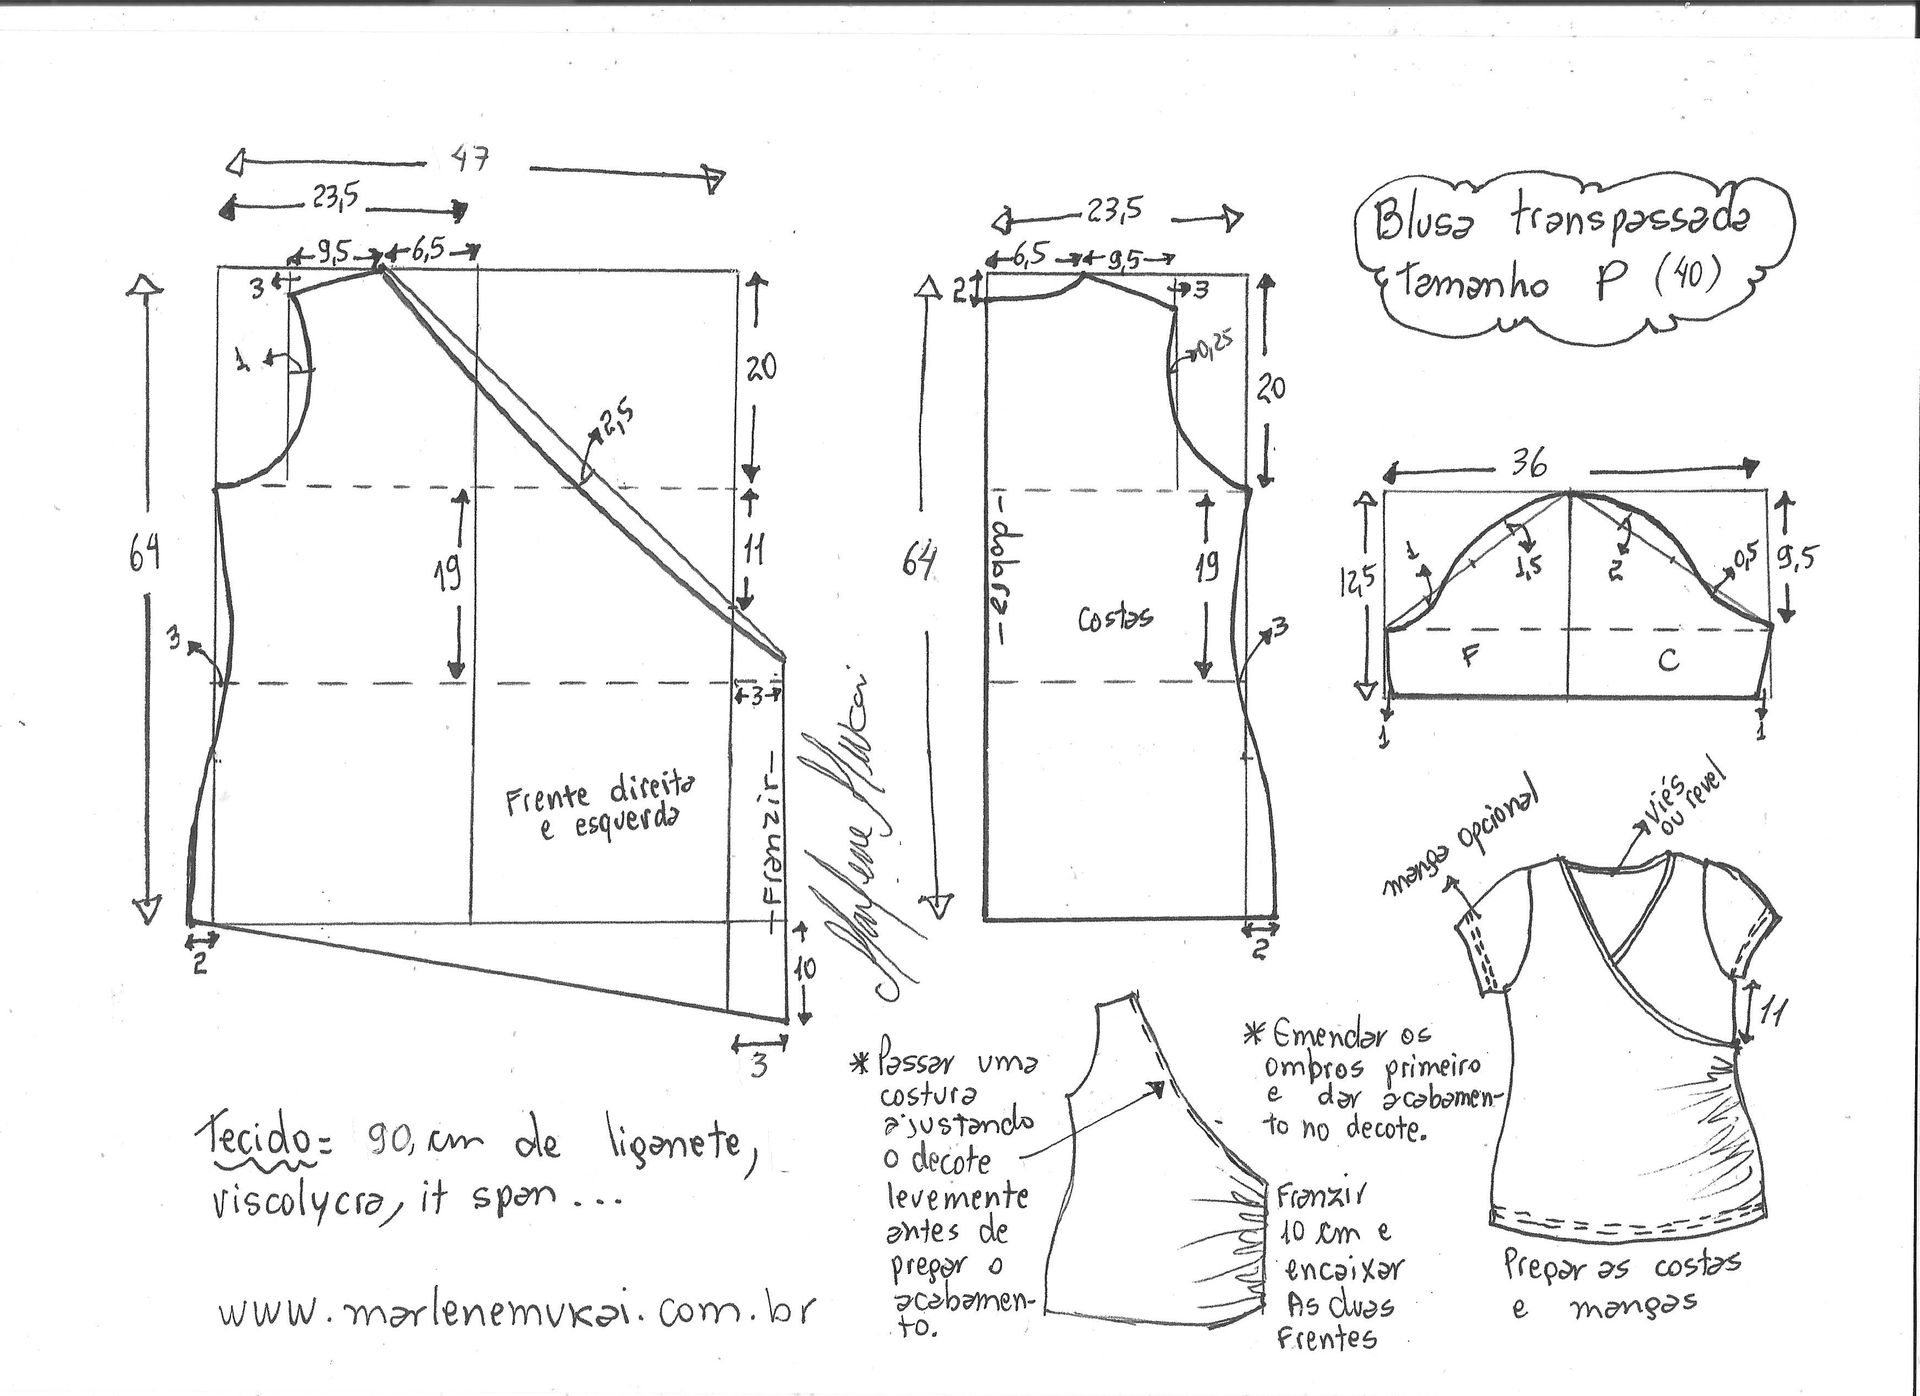 47
23,5
9,5
6,5
3
1
20
2,5
64
19
11
3
3
Frente direita
e esquerda
-Franzir-
2
10
3
Marlene Mukai
23,5
6,5
9,5
2
3
0,25
20
64
-dobra-
19
Costas
3
2
Blusa transpassada
tamanho P (40)
36
12,5
1
1,5
2
0,5
9,5
F
C
1
1
manga opcional
viés
ou revel
11
* Passar uma
costura
ajustando
o decote
levemente
antes de
pregar o
acabamen-
to.
* Emendar os
ombros primeiro
e dar acabamen-
to no decote.
Franzir
10 cm e
encaixar
As duas
Frentes
Pregar as costas
e mangas
Tecido= 90,cm de liganete,
viscolycra, it span...
www.marlenemukai.com.br